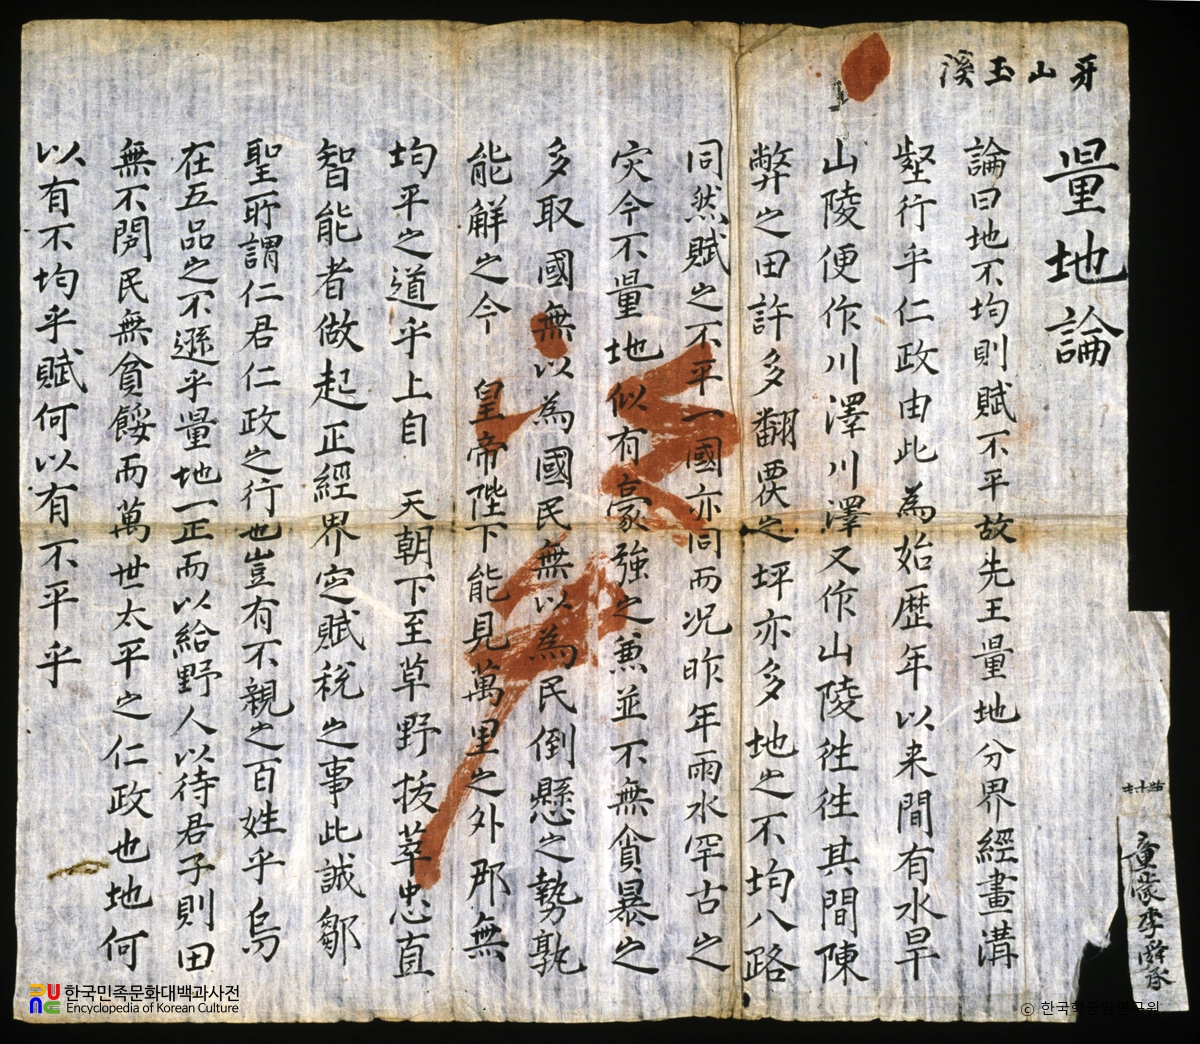 牙山玉溪
量地論
論曰地不均則賦不平故先王量地分界經畫溝
壑行乎仁政由此為始歷年以来間有水旱
山陵便作川澤川澤又作山陵徃徃其間陳
弊之田許多翻覆之坪亦多地之不均八路
同然賦之不平一國亦同而況昨年雨水罕古之
灾今不量地似有豪強之兼並不無貪暴之
多取國無以為國民無以為民倒懸之勢孰
能解之今皇帝陛下能見萬里之外郡無
均平之道乎上自天朝下至草野拔萃忠直
智能者做起正經界定賦稅之事此誠鄒
聖所謂仁君仁政之行也豈有不親之百姓乎烏
在五品之不遜乎量地一正而以給野人以待君子則田
無不闢民無貧餒而萬世太平之仁政也地何
以有不均乎賦何以有不平乎
童蒙李舜承
한국민족문화대백과사전
Encyclopedia of Korean Culture
© 한국학중앙연구원